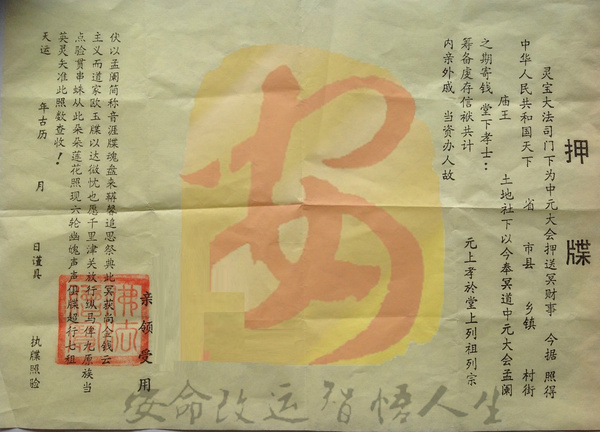 押牒
灵宝大法司门下为中元大会押送冥财事 今据 照得
中华人民共和国天下 省 市县 乡镇 村街
庙王 土地社下以今奉冥道中元大会孟阑
之期寄钱 堂下孝士：
筹备虔存信袱共计 元上孝於堂上列祖列宗
内亲外戚 当资办人故
亲领受用
伏以孟阑简称音涯牒魂盘来稱馨追思祭典此冥荻尚金钱云
主义而道家欧玉牒以达微忱也愿千里津关放行纵马俾九原族当
点验贯串蛛从此朵朵莲花照现六轮幽魄声声玉牒超行七祖
英灵矢准此照数查收！
天运 年古历 月 日谨具 执牒照验
安
安命改运 智悟人生